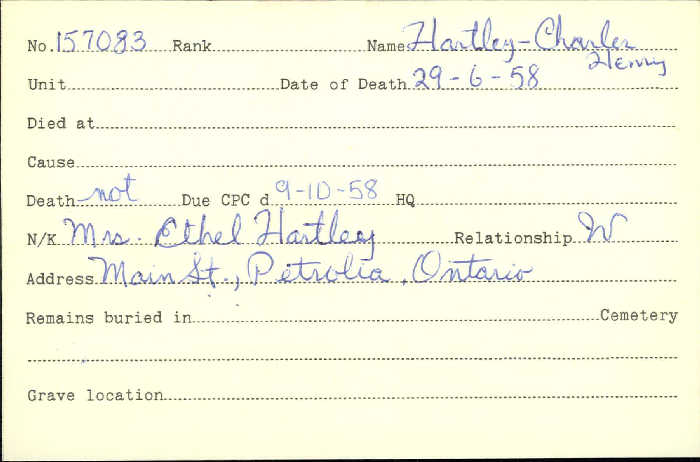 No. 157083 Rank Name Hartley - Charles Henry
Unit Date of Death 29-6-58
Died at
Cause
Death not Due CPC d 9-10-58 HQ
N/K Mrs. Ethel Hartley Relationship W
Address Main St., Petrolia, Ontario
Remains buried in Cemetery
Grave location